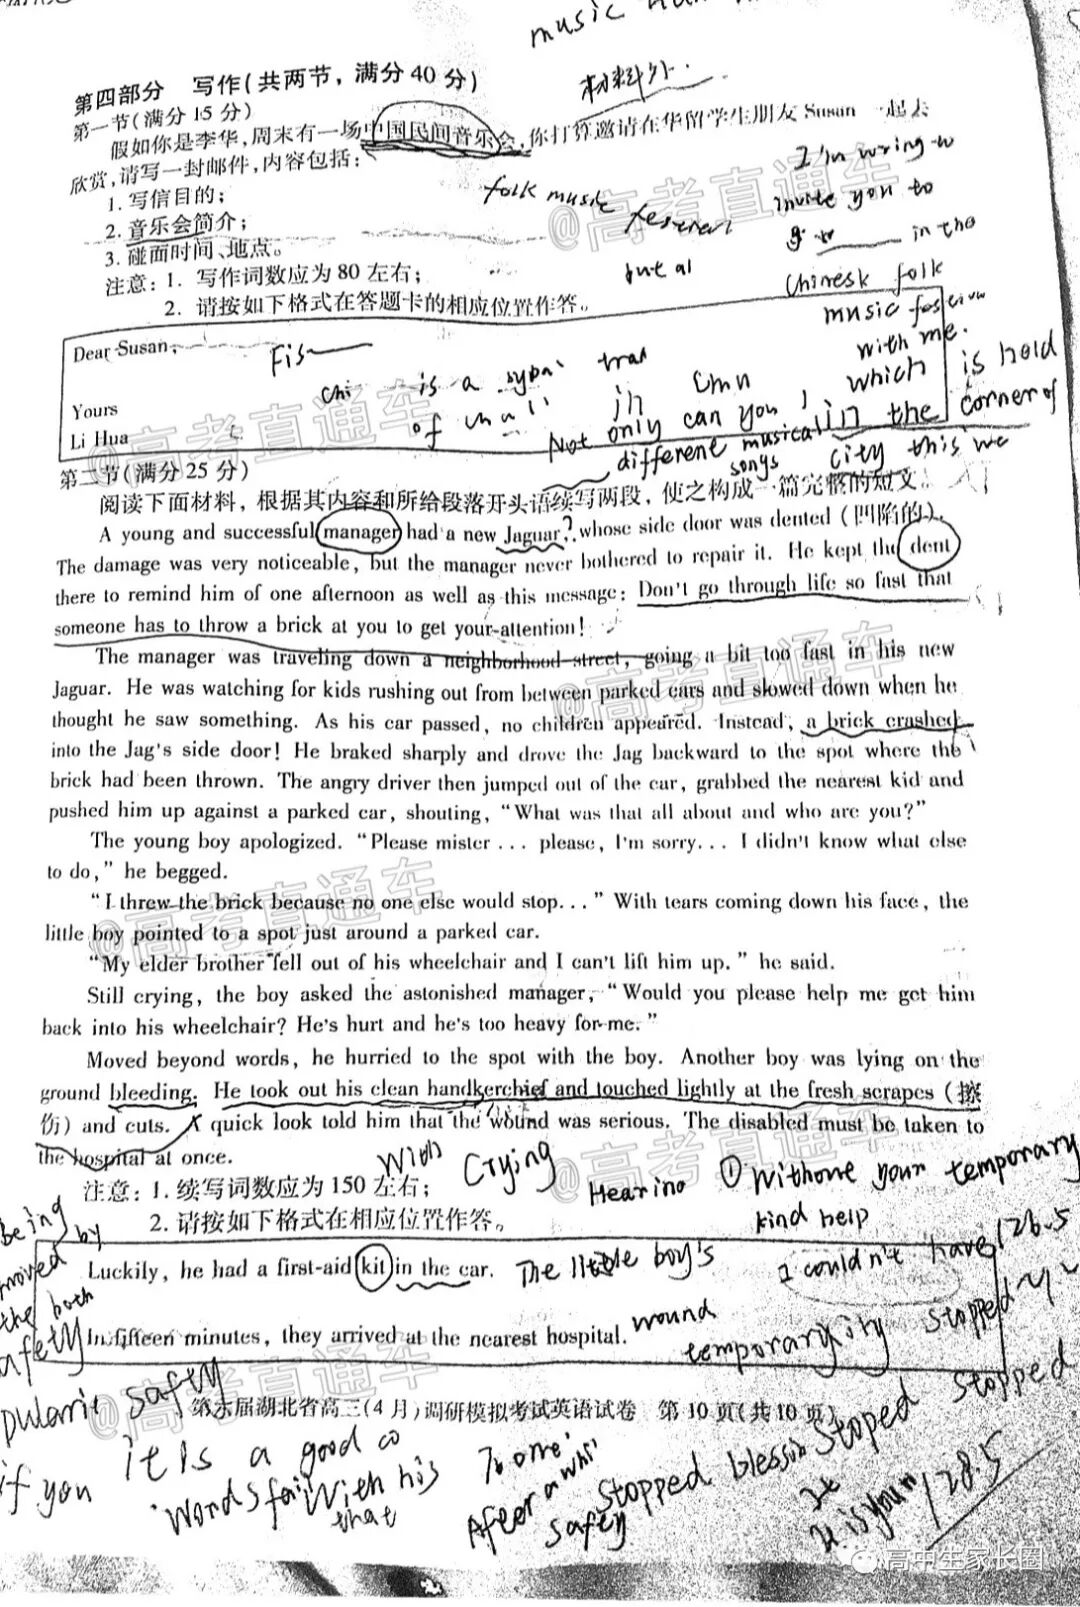 music
第四部分 写作(共两节，满分40分)
材料外.
第一节(满分15分)
假如你是李华,周末有一场中国民间音乐会,你打算邀请在华留学生朋友Susan一起去
欣赏,请写一封邮件,内容包括:
I'm wring to
1. 写信目的;
folk music
invite you to
2. 音乐会简介;
in the
3. 碰面时间、地点。
注意: 1. 写作词数应为80左右;
but al
Chinesk folk
2. 请按如下格式在答题卡的相应位置作答。
music
Dear Susan,
Fis
with me.
is a
in
which
is held
Yours
of
Not only can you,
in the
corner of
Li Hua
different musical
songs
city this we
第二节(满分25分)
阅读下面材料，根据其内容和所给段落开头语续写两段，使之构成一篇完整的短文。
A young and successful manager had a new Jaguar, whose side door was dented (凹陷的).
The damage was very noticeable, but the manager never bothered to repair it. He kept the dent
there to remind him of one afternoon as well as this message: Don't go through life so fast that
someone has to throw a brick at you to get your attention!
The manager was traveling down a neighborhood street, going a bit too fast in his new
Jaguar. He was watching for kids rushing out from between parked cars and slowed down when he
thought he saw something. As his car passed, no children appeared. Instead, a brick crashed
into the Jag's side door! He braked sharply and drove the Jag backward to the spot where the
brick had been thrown. The angry driver then jumped out of the car, grabbed the nearest kid and
pushed him up against a parked car, shouting, "What was that all about and who are you?"
The young boy apologized. "Please mister ... please, I'm sorry... I didn't know what else
to do," he begged.
"I threw the brick because no one else would stop..." With tears coming down his face, the
little boy pointed to a spot just around a parked car.
"My elder brother fell out of his wheelchair and I can't lift him up." he said.
Still crying, the boy asked the astonished manager, "Would you please help me get him
back into his wheelchair? He's hurt and he's too heavy for me."
Moved beyond words, he hurried to the spot with the boy. Another boy was lying on the
ground bleeding. He took out his clean handkerchief and touched lightly at the fresh scrapes (擦
伤) and cuts. A quick look told him that the wound was serious. The disabled must be taken to
the hospital at once.
with
Crying
Hearino
① Withone your temporary
注意: 1. 续写词数应为150左右;
kind help
2. 请按如下格式在相应位置作答。
Being
by
moved
Luckily, he had a first-aid kit in the car.
The little boy's
I couldn't have
126.5
the both
wound
stopped
In fifteen minutes, they arrived at the nearest hospital.
safety
第六届湖北省高三(4月)调研模拟考试英语试卷 第10页(共10页)
safty
stopped
if you
it is a good
Words fail
With his
that
After a
safty
stopped
blessin
stoped
128.5
高考直通车
高中生家长圈